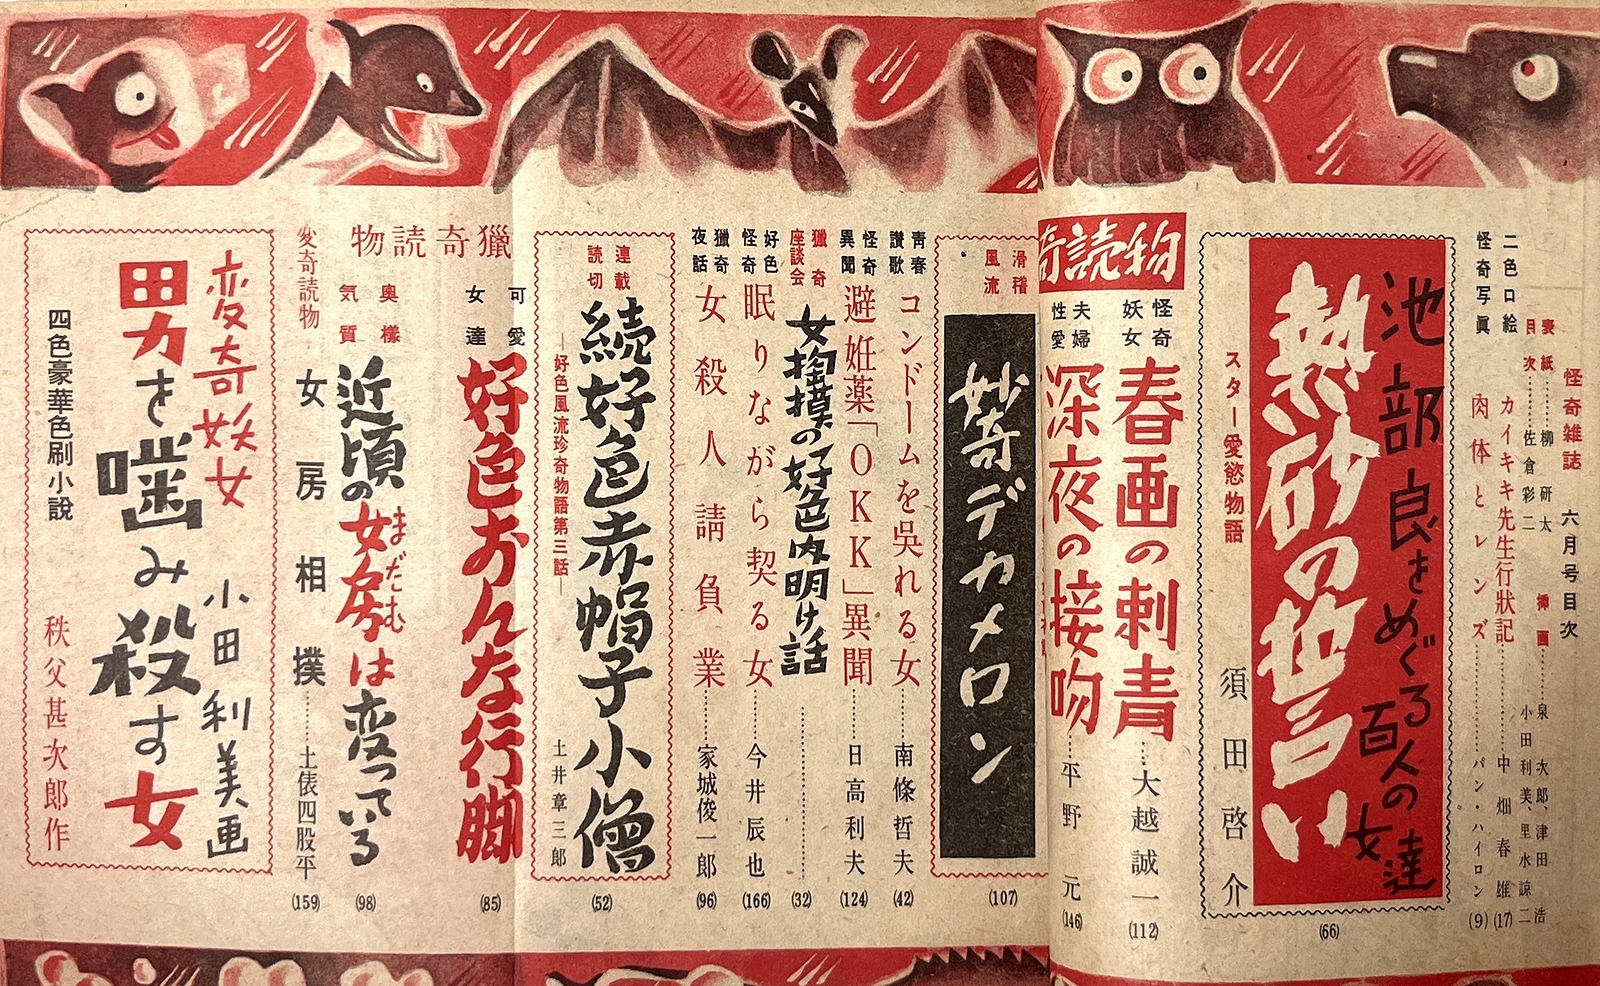 怪奇雑誌 六月号目次
表紙………柳 研太
目次………佐倉彩二
挿画………泉 次郎、津田 浩
小田利美、里水諒二
二色口絵 カイキキ先生行狀記………中畑春雄(17)
怪奇写眞 肉体とレンズ………パン・ハイロン(9)
池部良をめぐる百人の女達
熱砂の抱擁
スター愛慾物語
須田啓介
(66)
奇読物
怪奇妖女 春画の刺青……大越誠一(112)
夫婦性愛 深夜の接吻……平野 元(146)
滑稽風流
妙奇デカメロン
(107)
青春讃歌 コンドームを呉れる女………南條哲夫(42)
怪奇異聞 避妊薬「OKK」異聞………日高利夫(124)
獵奇座談会 女掏摸の好色内明け話………(32)
好色怪奇 眠りながら契る女………今井辰也(166)
獵奇夜話 女殺人請負業………家城俊一郎(96)
連載読切
続好色赤帽子小僧
―好色風流珍奇物語第三話―
土井章三郎
(52)
獵奇読物
可愛女達 好色おんな行脚(85)
奥樣気質 近頃の女房は変っている(98)
まだむ
変奇読物 女房相撲………土俵四股平(159)
変奇妖女
小田利美画
男を噛み殺す女
四色豪華色刷小說
秩父甚次郎作